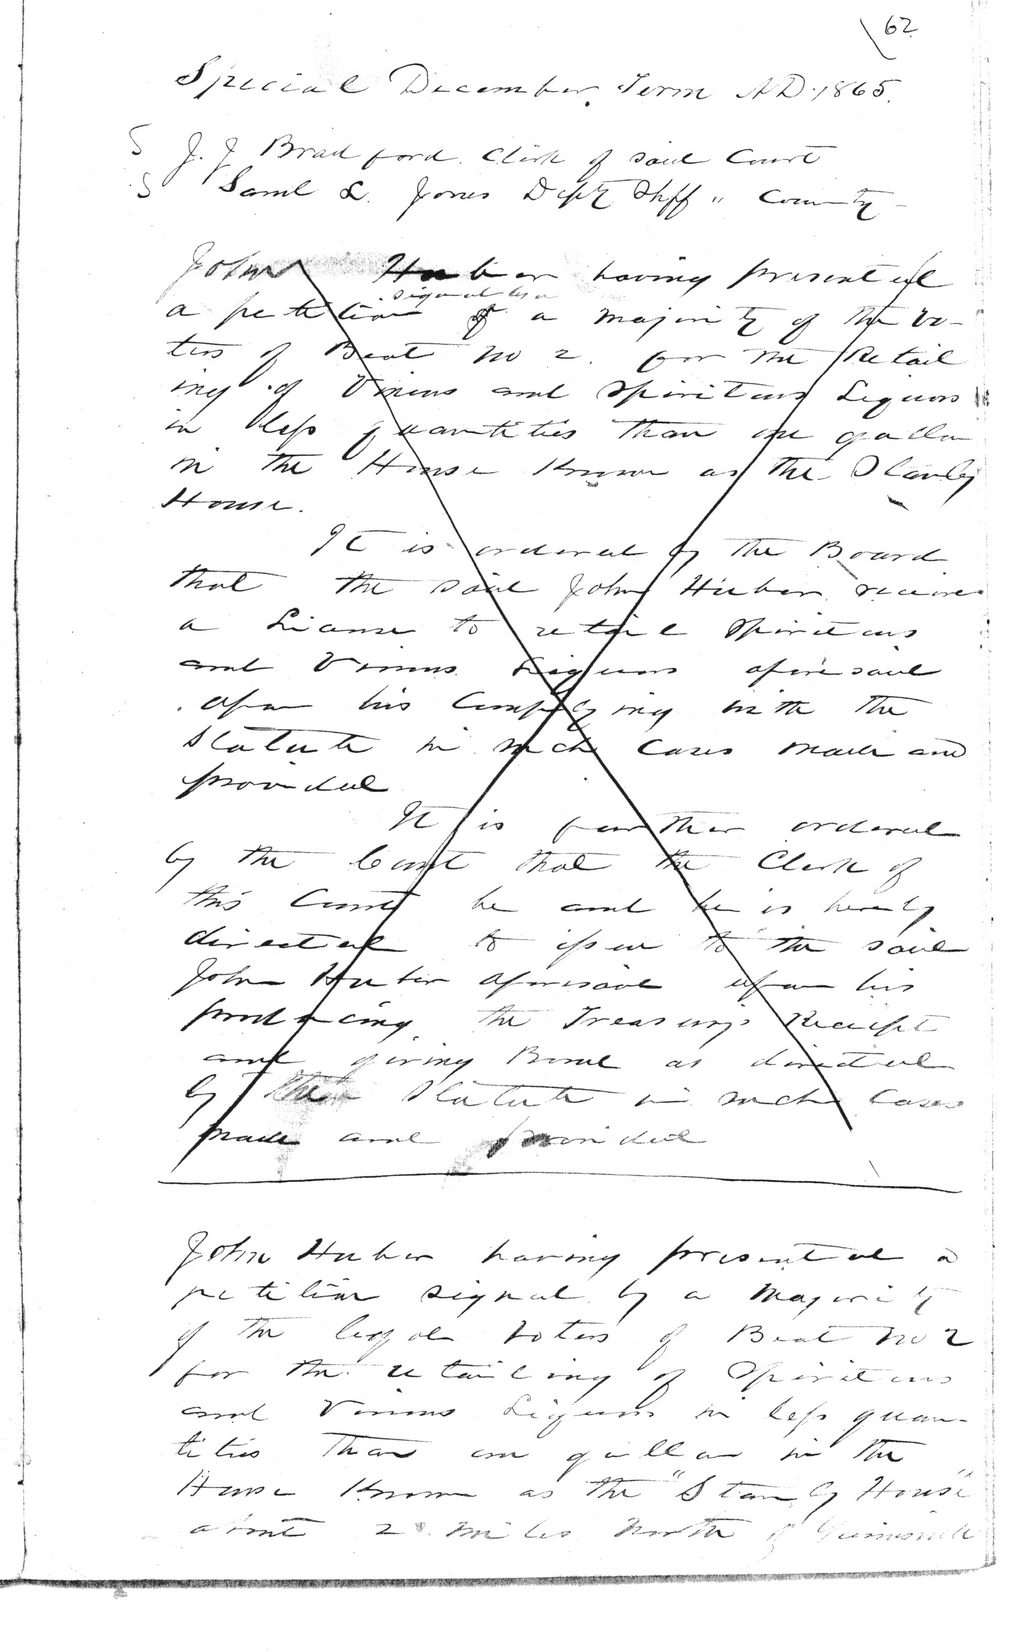 62
Special December Term AD. 1865.
5 J. J Bradford Clerk of said Court
5 Saml L. Jones Depty Shff " County
John Huber having presented
signed by a
a petition of a majority of the vo-
ters of Beat No 2. for the Retail
ing of Vinous and Spiritous Liquors
in less quantities than one gallon
in the House Known as the Stanly
House.
It is ordered by the Board
that the said John Huber receives
a License to retail Spiritous
and Vinous Liquors aforesaid
upon his Complying with the
Statute in such cases made and
provided
It is further ordered
by the Court that the Clerk of
this Court be and he is hereby
directed to issue to the said
John Huber aforesaid upon his
producing the Treasury's Receipt
and giving Bond as directed
by the Statute in such Cases
made and provided
John Huber having presented a
petition signed by a Majority
of the legal voters of Beat No 2
for the retailing of Spiritous
and Vinous Liquors in less quan-
tities than one gallon in the
House Known as the "Stanly House"
about 2 miles North of